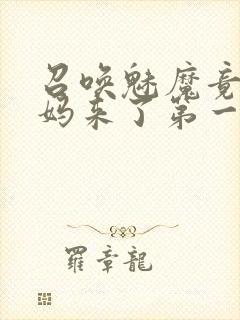 召唤魅魔竟
妈来了第一
羅章龍